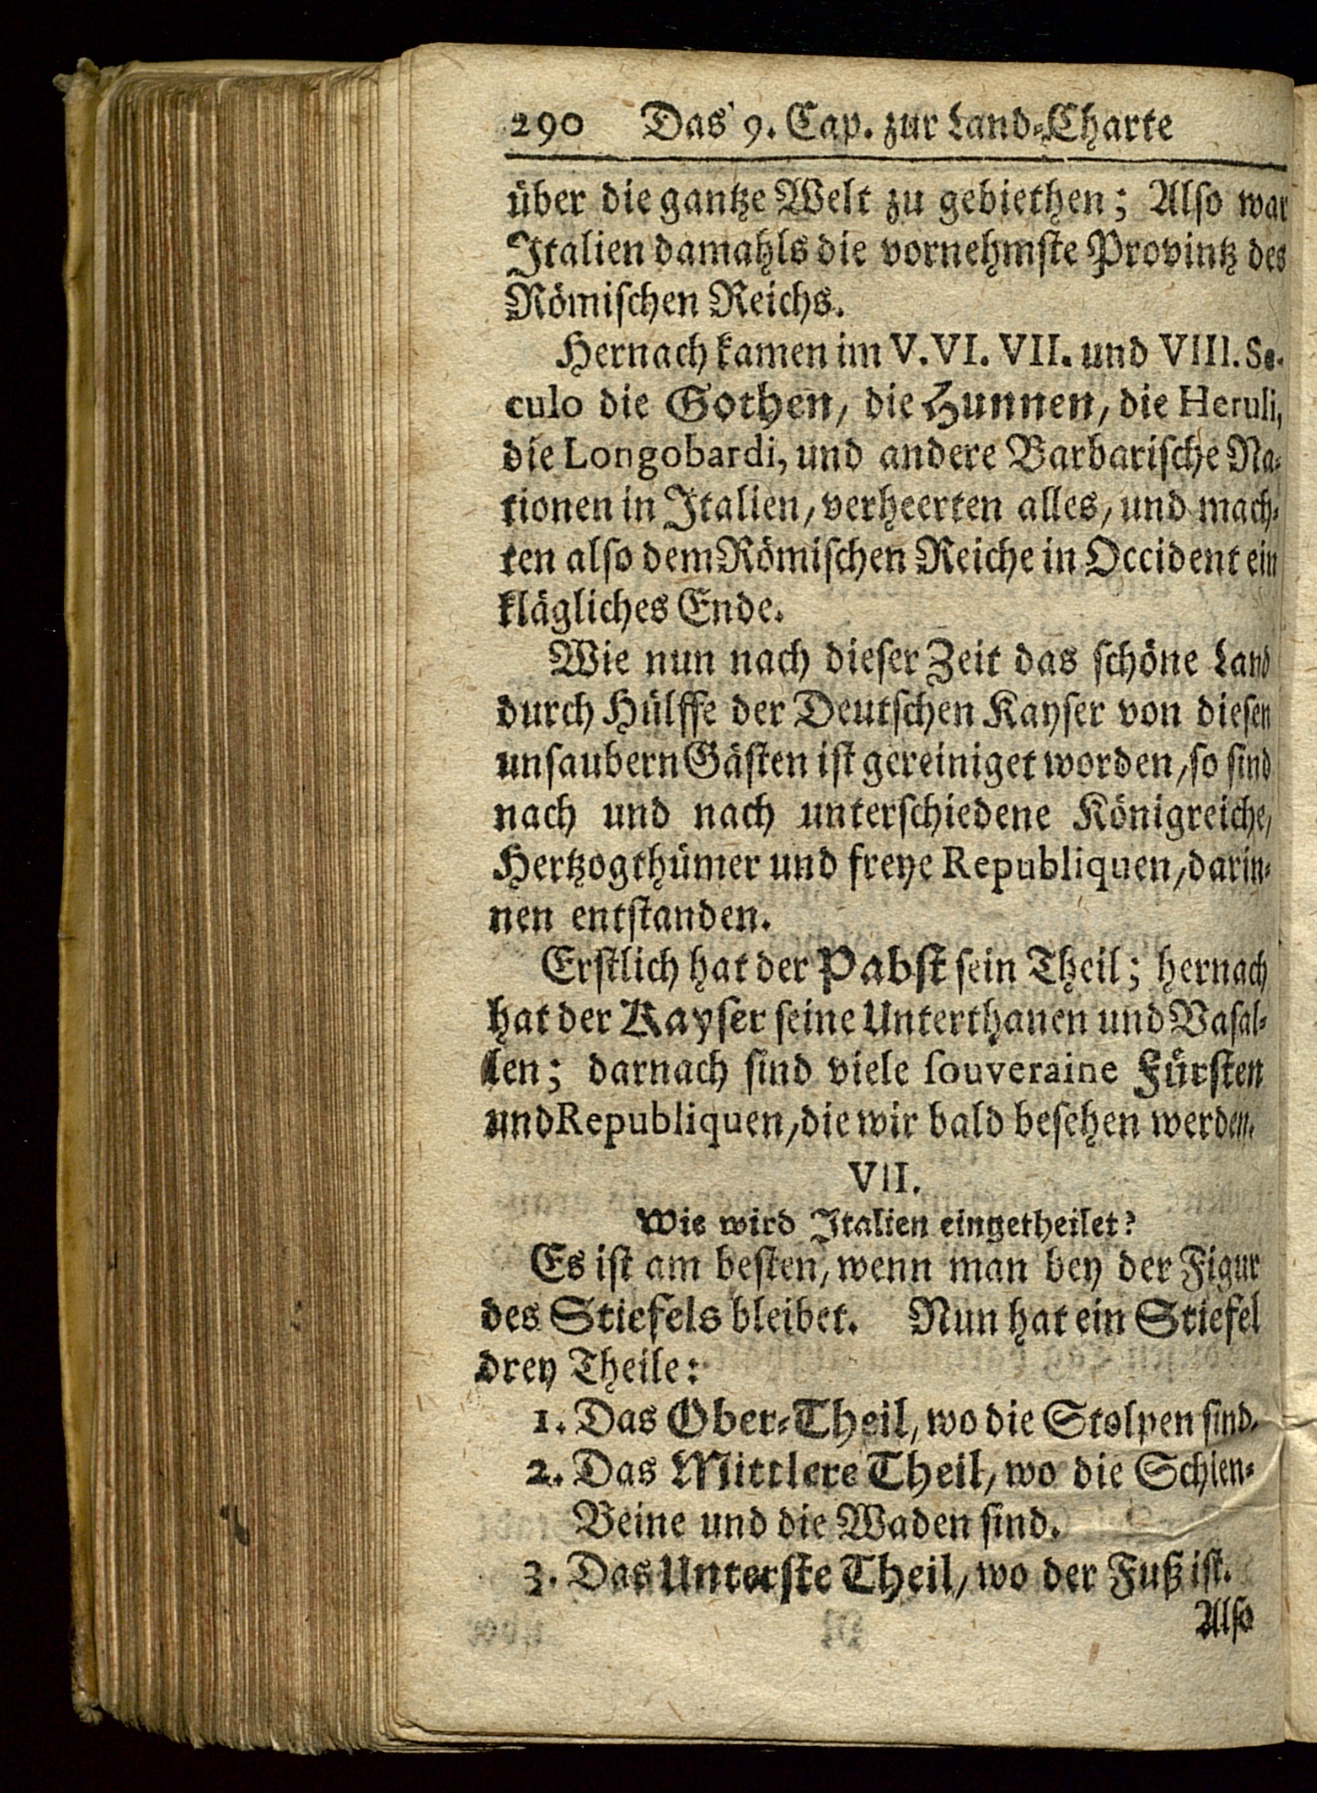 290 Das 9. Cap. zur Land-Charte
über die gantze Welt zu gebiethen; Also war
Italien damahls die vornehmste Provintz des
Römischen Reichs.
Hernach kamen im V. VI. VII. und VIII. Se-
culo die Gothen, die Hunnen, die Heruli,
die Longobardi, und andere Barbarische Na-
tionen in Italien, verheerten alles, und mach-
ten also dem Römischen Reiche in Occident ein
klägliches Ende.
Wie nun nach dieser Zeit das schöne Land
durch Hülffe der Deutschen Kayser von diesen
unsaubern Gästen ist gereiniget worden, so sind
nach und nach unterschiedene Königreiche,
Hertzogthümer und freye Republiquen, darin-
nen entstanden.
Erstlich hat der Pabst sein Theil; hernach
hat der Kayser seine Unterthanen und Vasal-
len; darnach sind viele souveraine Fürsten
und Republiquen, die wir bald besehen werden.
VII.
Wie wird Italien eingetheilet?
Es ist am besten, wenn man bey der Figur
des Stiefels bleibet. Nun hat ein Stiefel
drey Theile:
1. Das Ober-Theil, wo die Stolpen sind.
2. Das Mittlere Theil, wo die Schien-
Beine und die Waden sind.
3. Das Unterste Theil, wo der Fuß ist.
Also